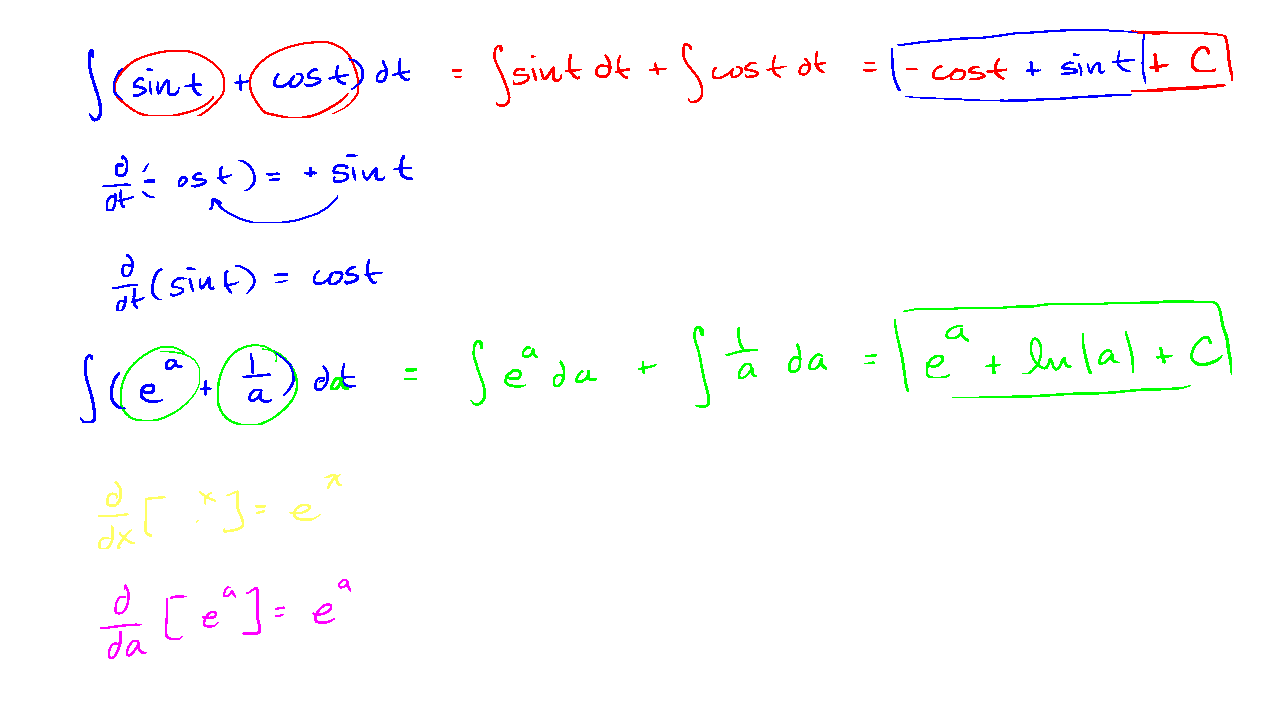 ∫(sin t + cos t) dt = ∫sin t dt + ∫cos t dt = - cos t + sin t + C
d/dt (- os t) = + sin t
d/dt (sin t) = cos t
∫(e^a + 1/a) da = ∫ e^a da + ∫ 1/a da = e^a + ln|a| + C
d/dx [ x ] = e^x
d/da [ e^a ] = e^a